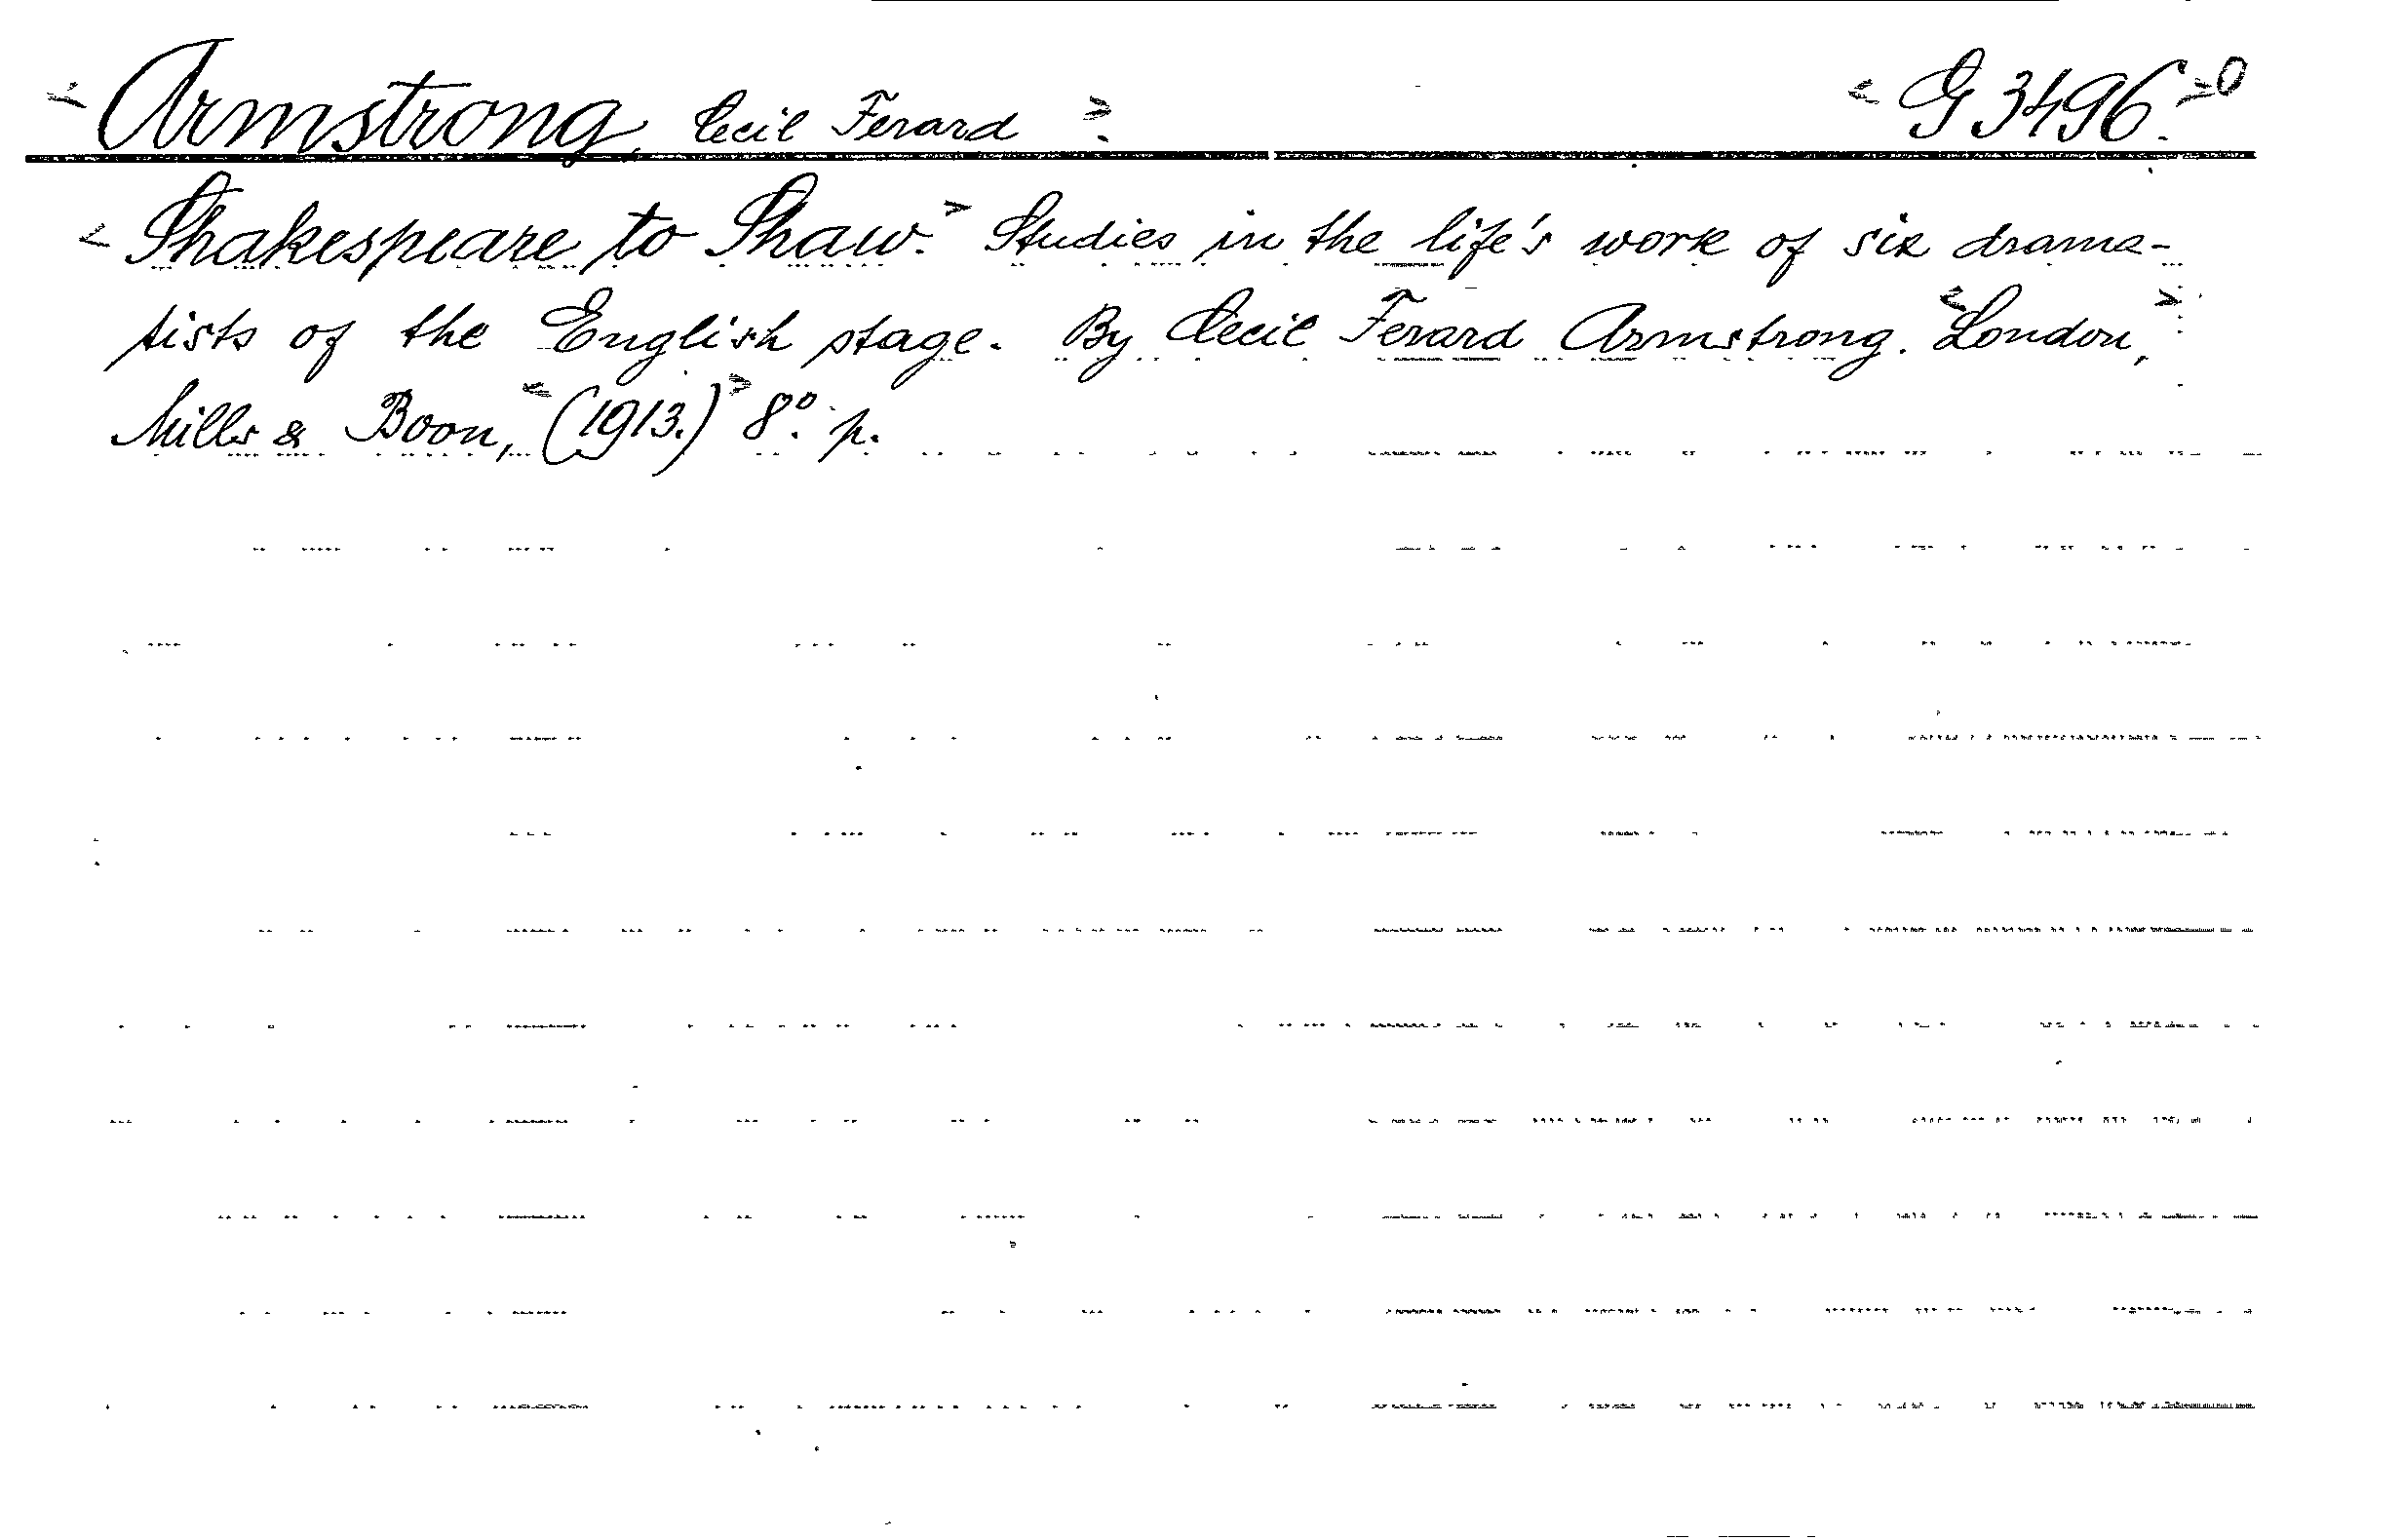 <Armstrong, Cecil Ferard>. <G 3496.>0
<Shakespeare to Shaw.> Studies in the life's work of six drama-
tists of the English stage. By Cecil Ferard Armstrong. <London,>
Mills & Boon, <(1913.)> 8º. p.